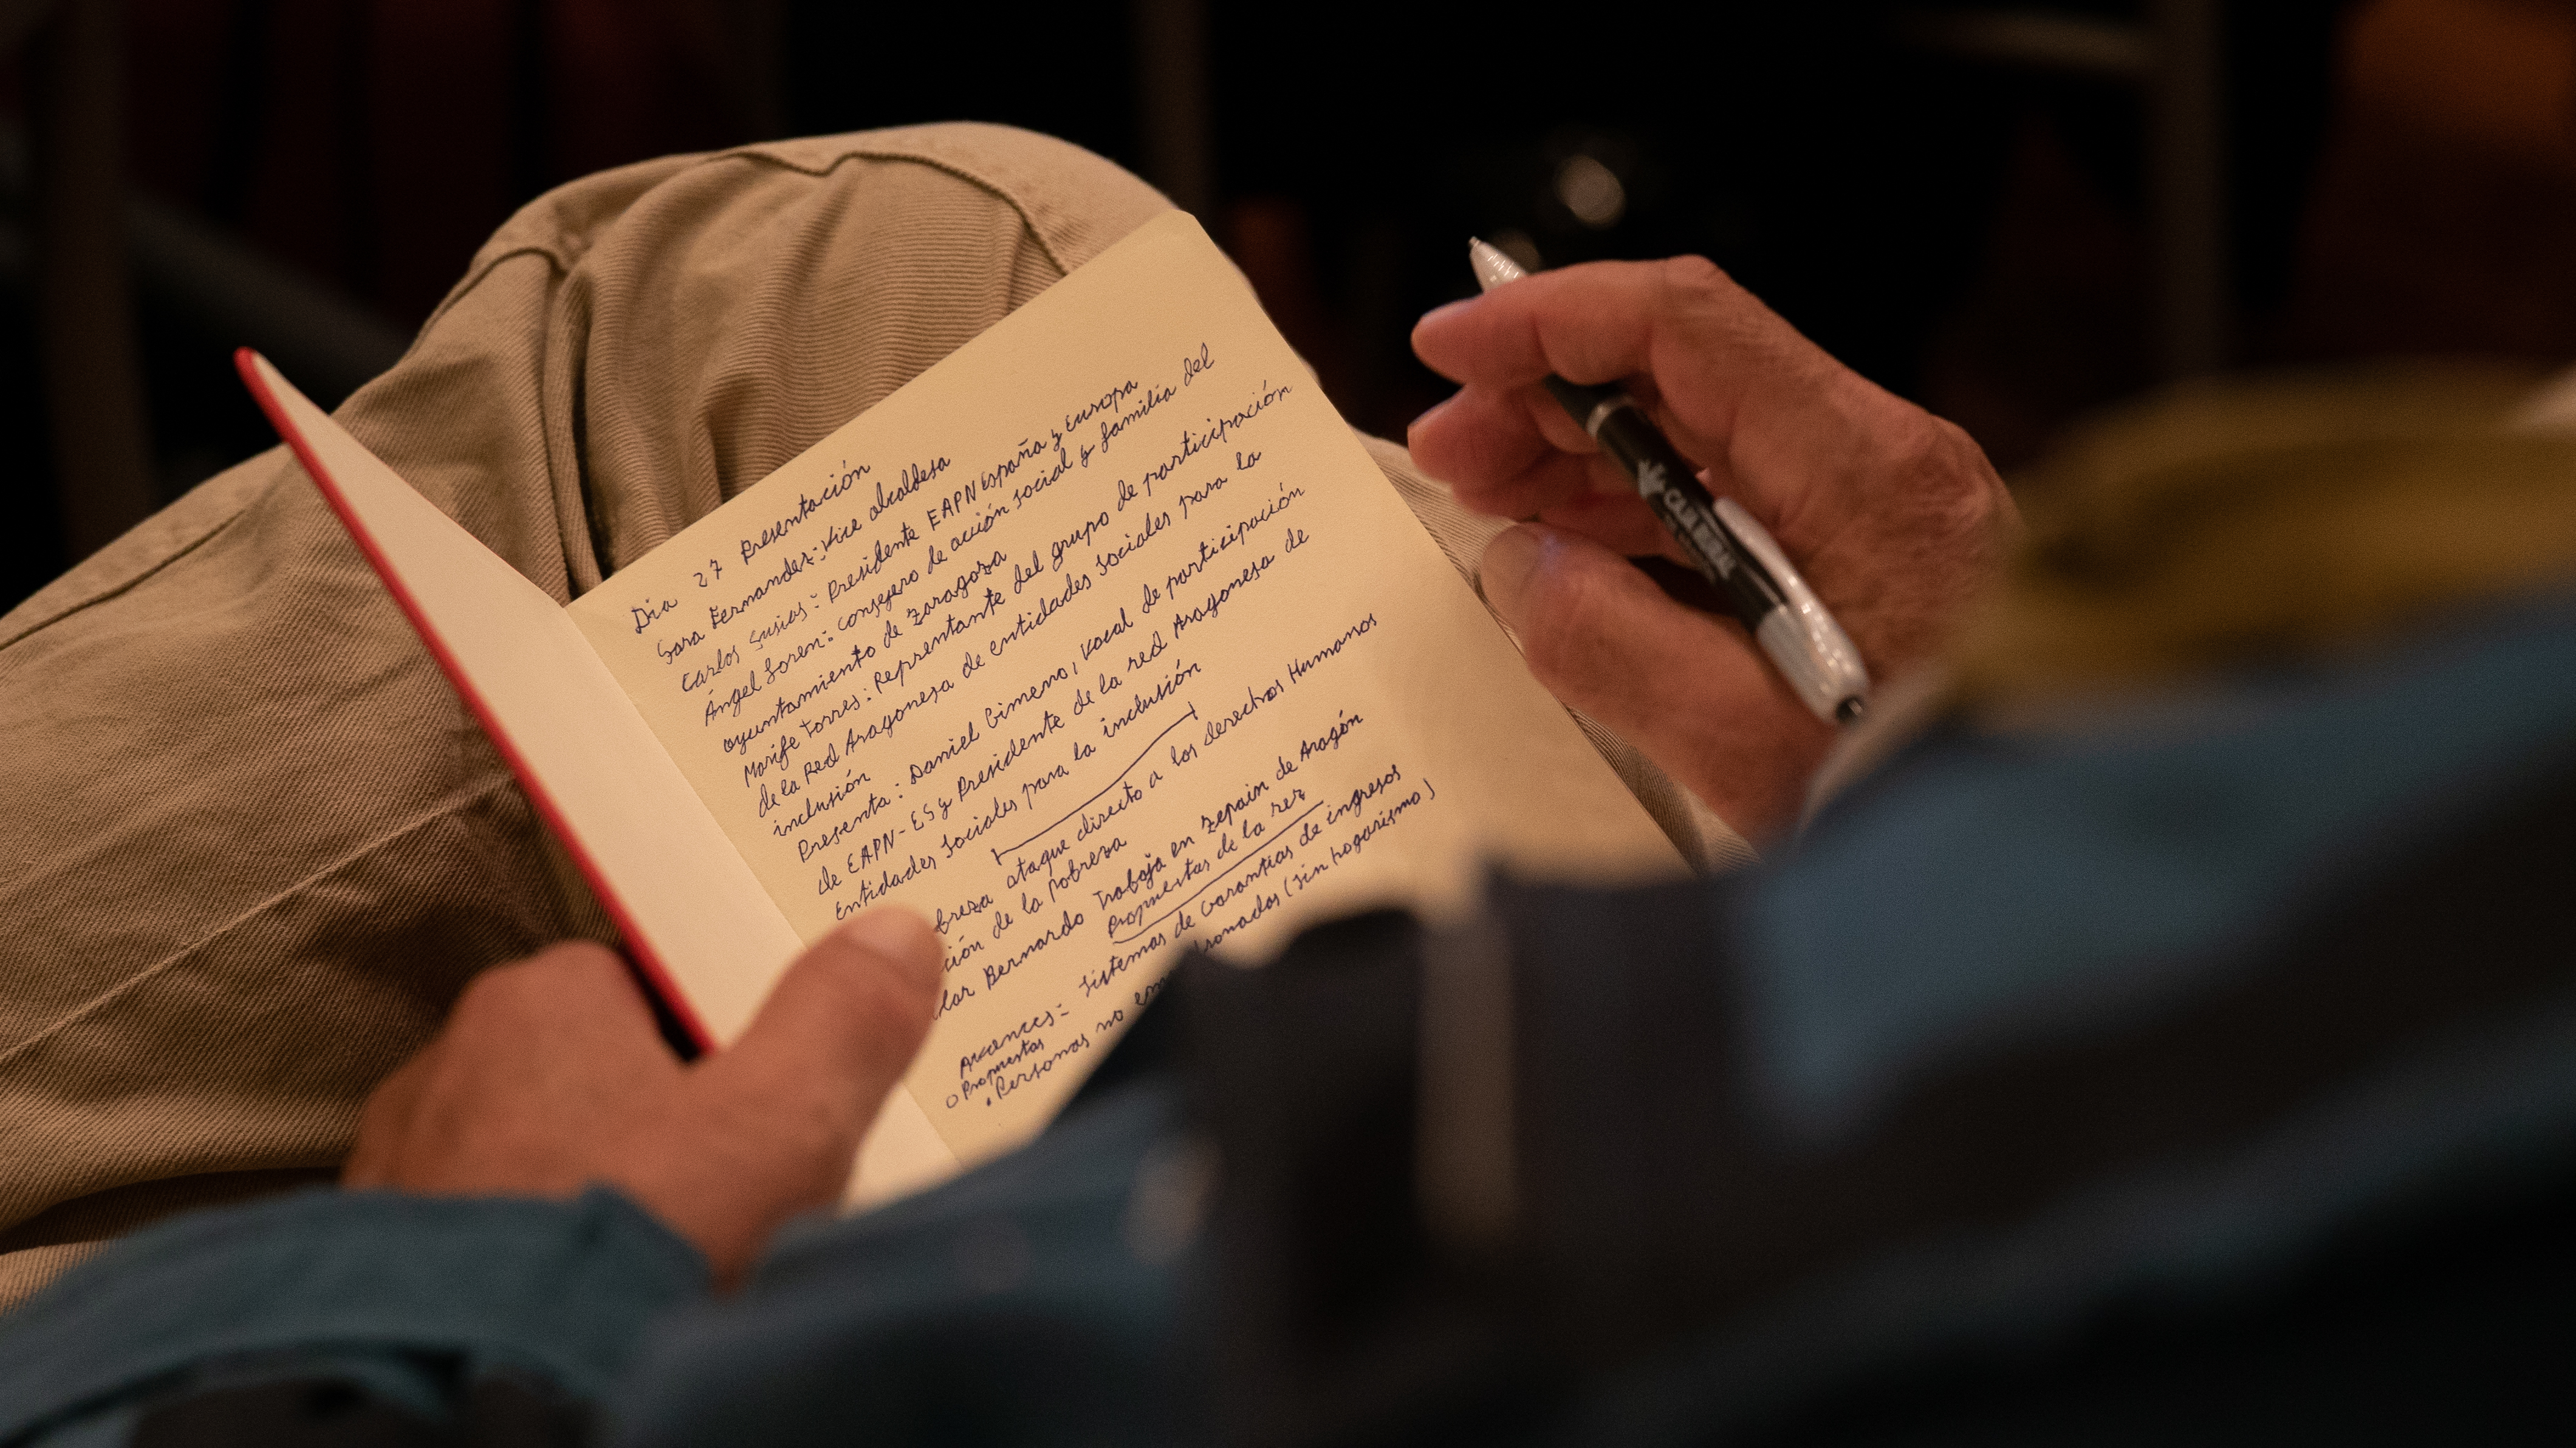 Dia 27 Presentación
Sara Fernandez: Vice alcaldesa
Carlos Susias: Presidente EAPN España y Europa
Ángel Loren: consejero de acción social y familia del
ayuntamiento de Zaragoza
Marife Torres: Reprentante del grupo de participación
de la Red Aragonesa de entidades Sociales para la
inclusión
Presenta: Daniel Gimeno, vocal de participación
de EAPN-ES y Presidente de la red Aragonesa de
Entidades Sociales para la inclusión
breza ataque directo a los derechos Humanos
ción de la Pobreza
lar Bernardo Trabaja en zepain de Aragón
Propuestas de la rez
Avances: Sistemas de Garantias de ingresos
o Propuestas
• Personas no em dronadas (sin hogarismo)
CAJA RURAL